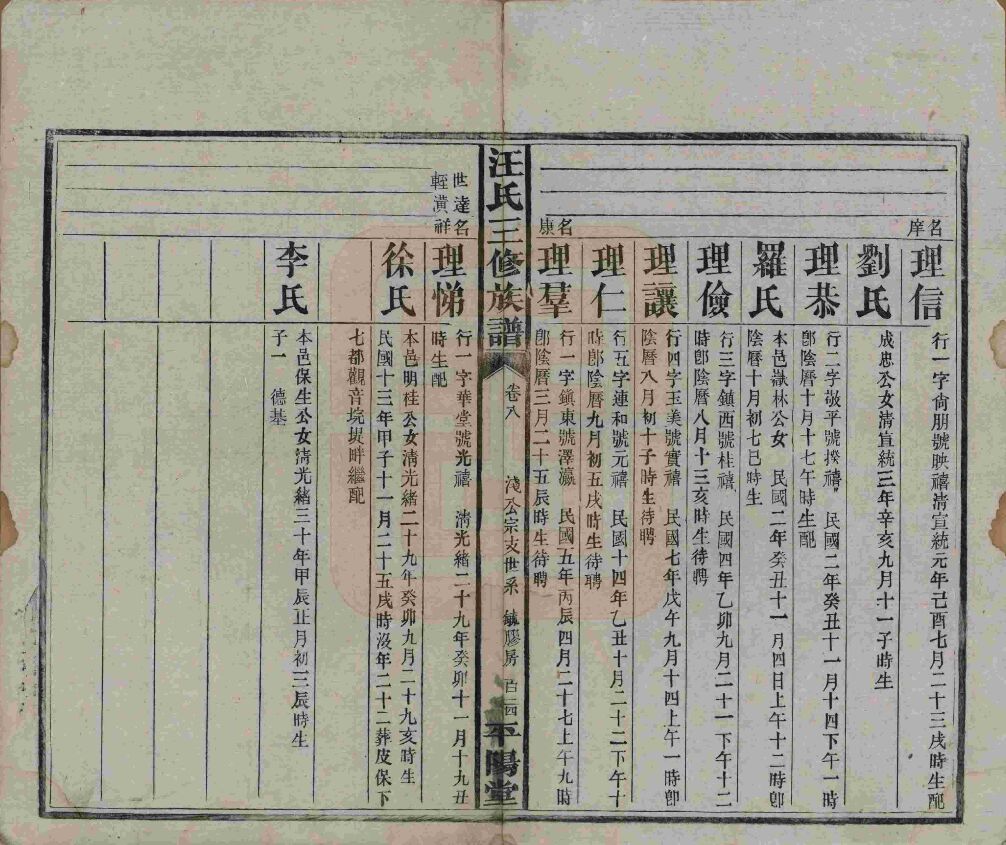 名庠
理信
行一字尙朋號映禧淸宣統元年己酉七月二十三戌時生配
劉氏
成忠公女淸宣統三年辛亥九月十一子時生
理恭
行二字敬平號揆禧 民國二年癸丑十一月十四下午一時
卽陰曆十月十七午時生配
羅氏
本邑嶽林公女 民國二年癸丑十一月四日上午十二時卽
陰曆十月初七巳時生
理儉
行三字鎮西號桂禧 民國四年乙卯九月二十一下午十二
時卽陰曆八月十三亥時生待聘
理讓
行四字玉美號實禧 民國七年戊午九月十四上午一時卽
陰曆八月初十子時生待聘
理仁
行五字連和號元禧 民國十四年乙丑十月二十二下午十
時卽陰曆九月初五戌時生待聘
名康
理羣
行一字鎮東號澤瀛 民國五年丙辰四月二十七上午九時
卽陰曆三月二十五辰時生待聘
汪氏三修族譜
卷八
淺公宗支世系
房
百二四
平陽堂
世達名
輊潢祥
理悌
行一字華堂號光禧 淸光緒二十九年癸卯十一月十九丑
時生配
徐氏
本邑明桂公女淸光緒二十九年癸卯九月二十九亥時生
民國十三年甲子十一月二十五戌時沒年二十二葬皮保下
七都觀音垸堤畔繼配
李氏
本邑保生公女淸光緒三十年甲辰正月初三辰時生
子一 德基